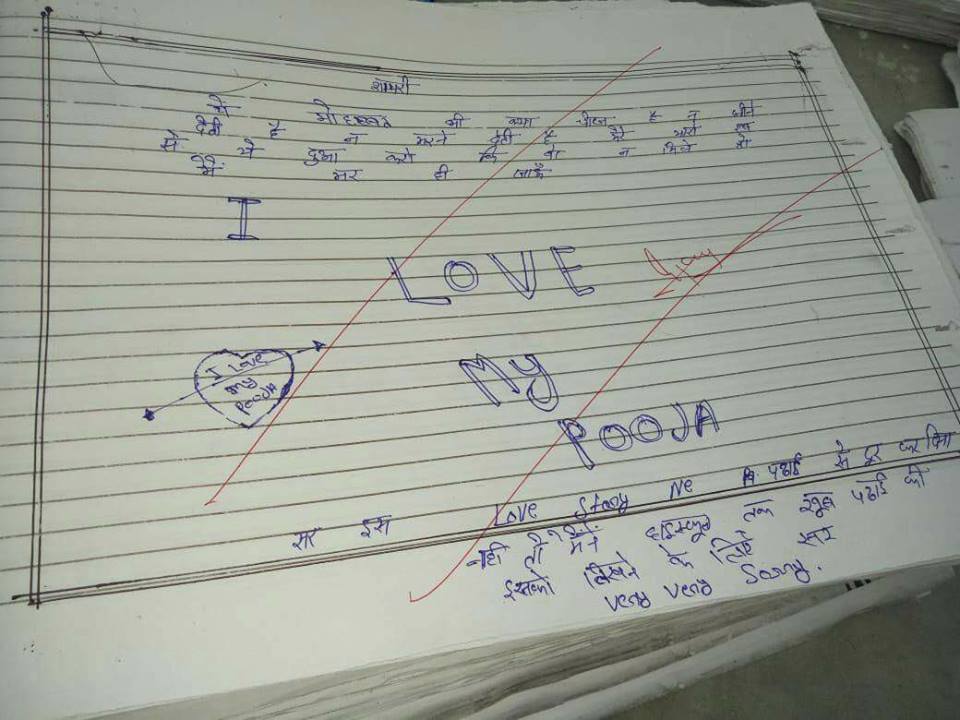 शायरी
ये मोहब्बत भी क्या चीज है न जीने
देती है न मरने देती है मेरे यारो
से ये दुआ करो कि वो न मिले तो
मैं मर ही जाऊँ
I
LOVE
MY
POOJA
I Love
my
POOJA
सर इस Love Story Ne पढाई से दूर कर दिया
नही तो मैंने हाइस्कूल तक खूब पढाई की
इसको लिखने के लिए सर
very very Sorry.